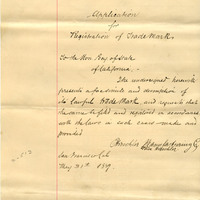 Application
for
Registration of Trade Marks.
To the Hon. Secy of State
of California:
The undersigned herewith
presents a facsimile and description of
its lawful Trade Mark, and requests that
the same be filed and registered in accordance
with the laws in such cases made and
provided
Manufacturing Co
San Francisco Cal
May 21st 1889